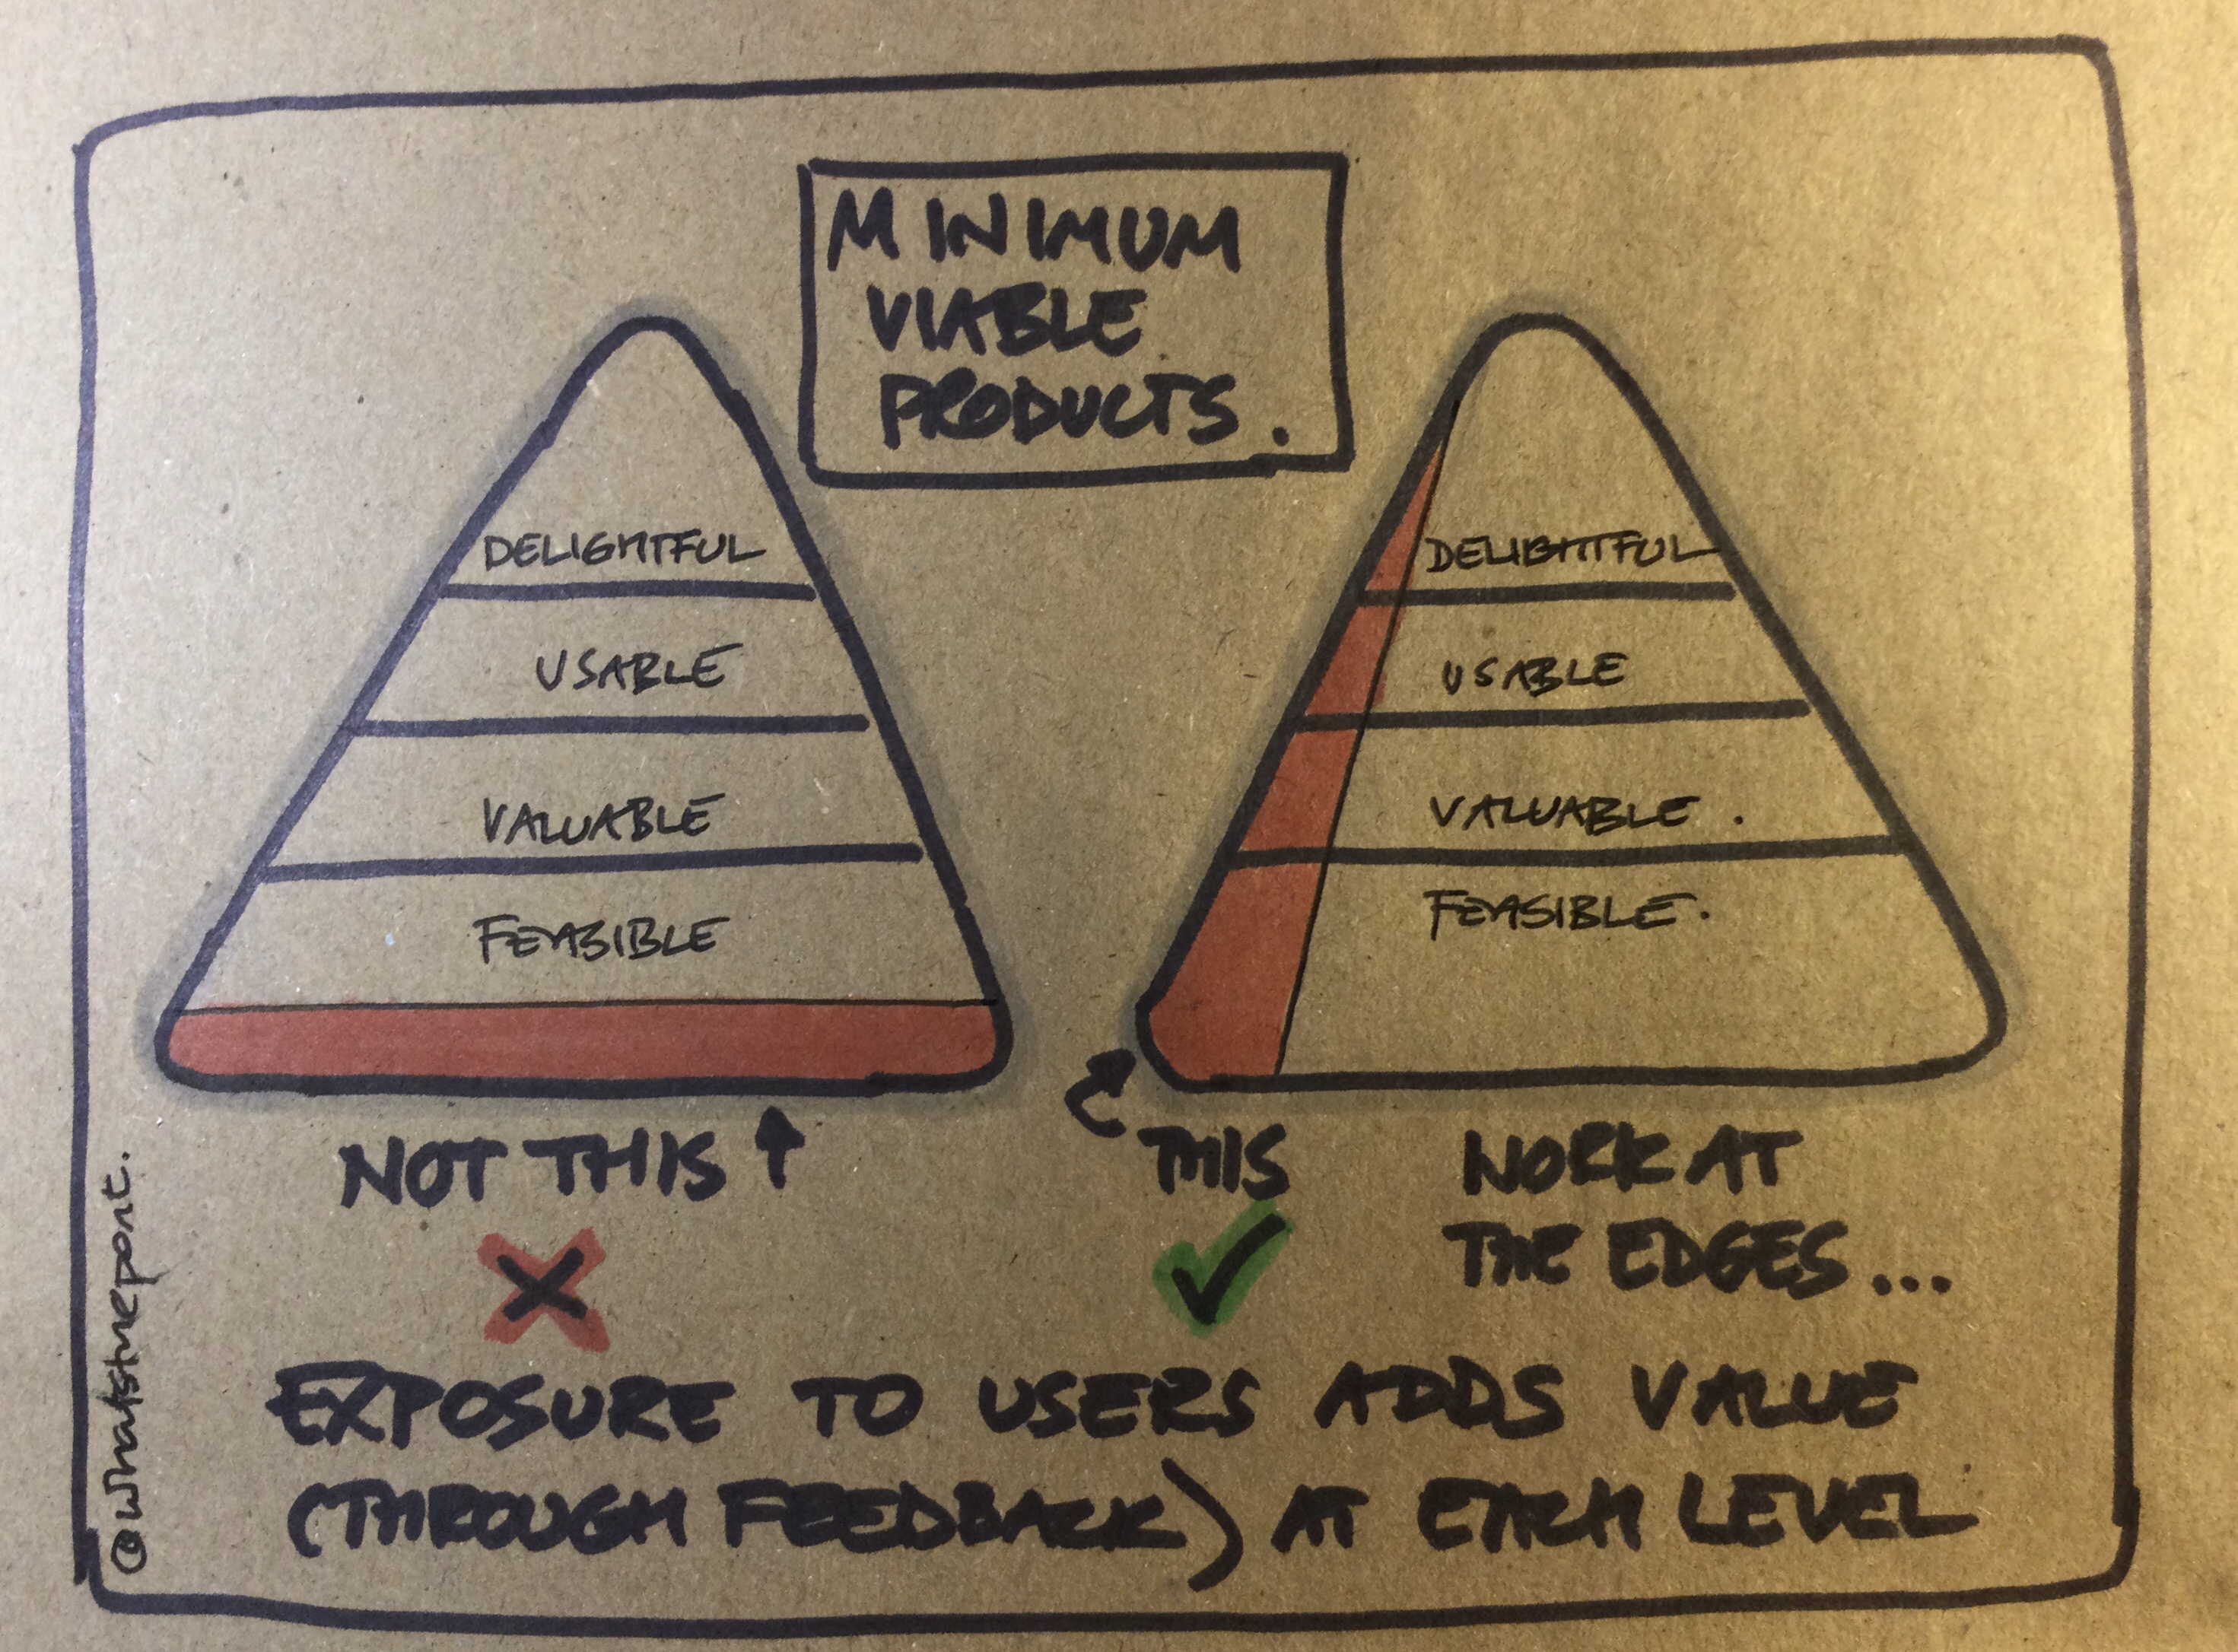 MINIMUM
VIABLE
PRODUCTS.
DELIGHTFUL
USABLE
VALUABLE
FEASIBLE
DELIGHTFUL
USABLE
VALUABLE.
FEASIBLE.
NOT THIS
THIS
WORK AT
THE EDGES...
EXPOSURE TO USERS ADDS VALUE
(THROUGH FEEDBACK) AT EACH LEVEL
@whatsthepont.